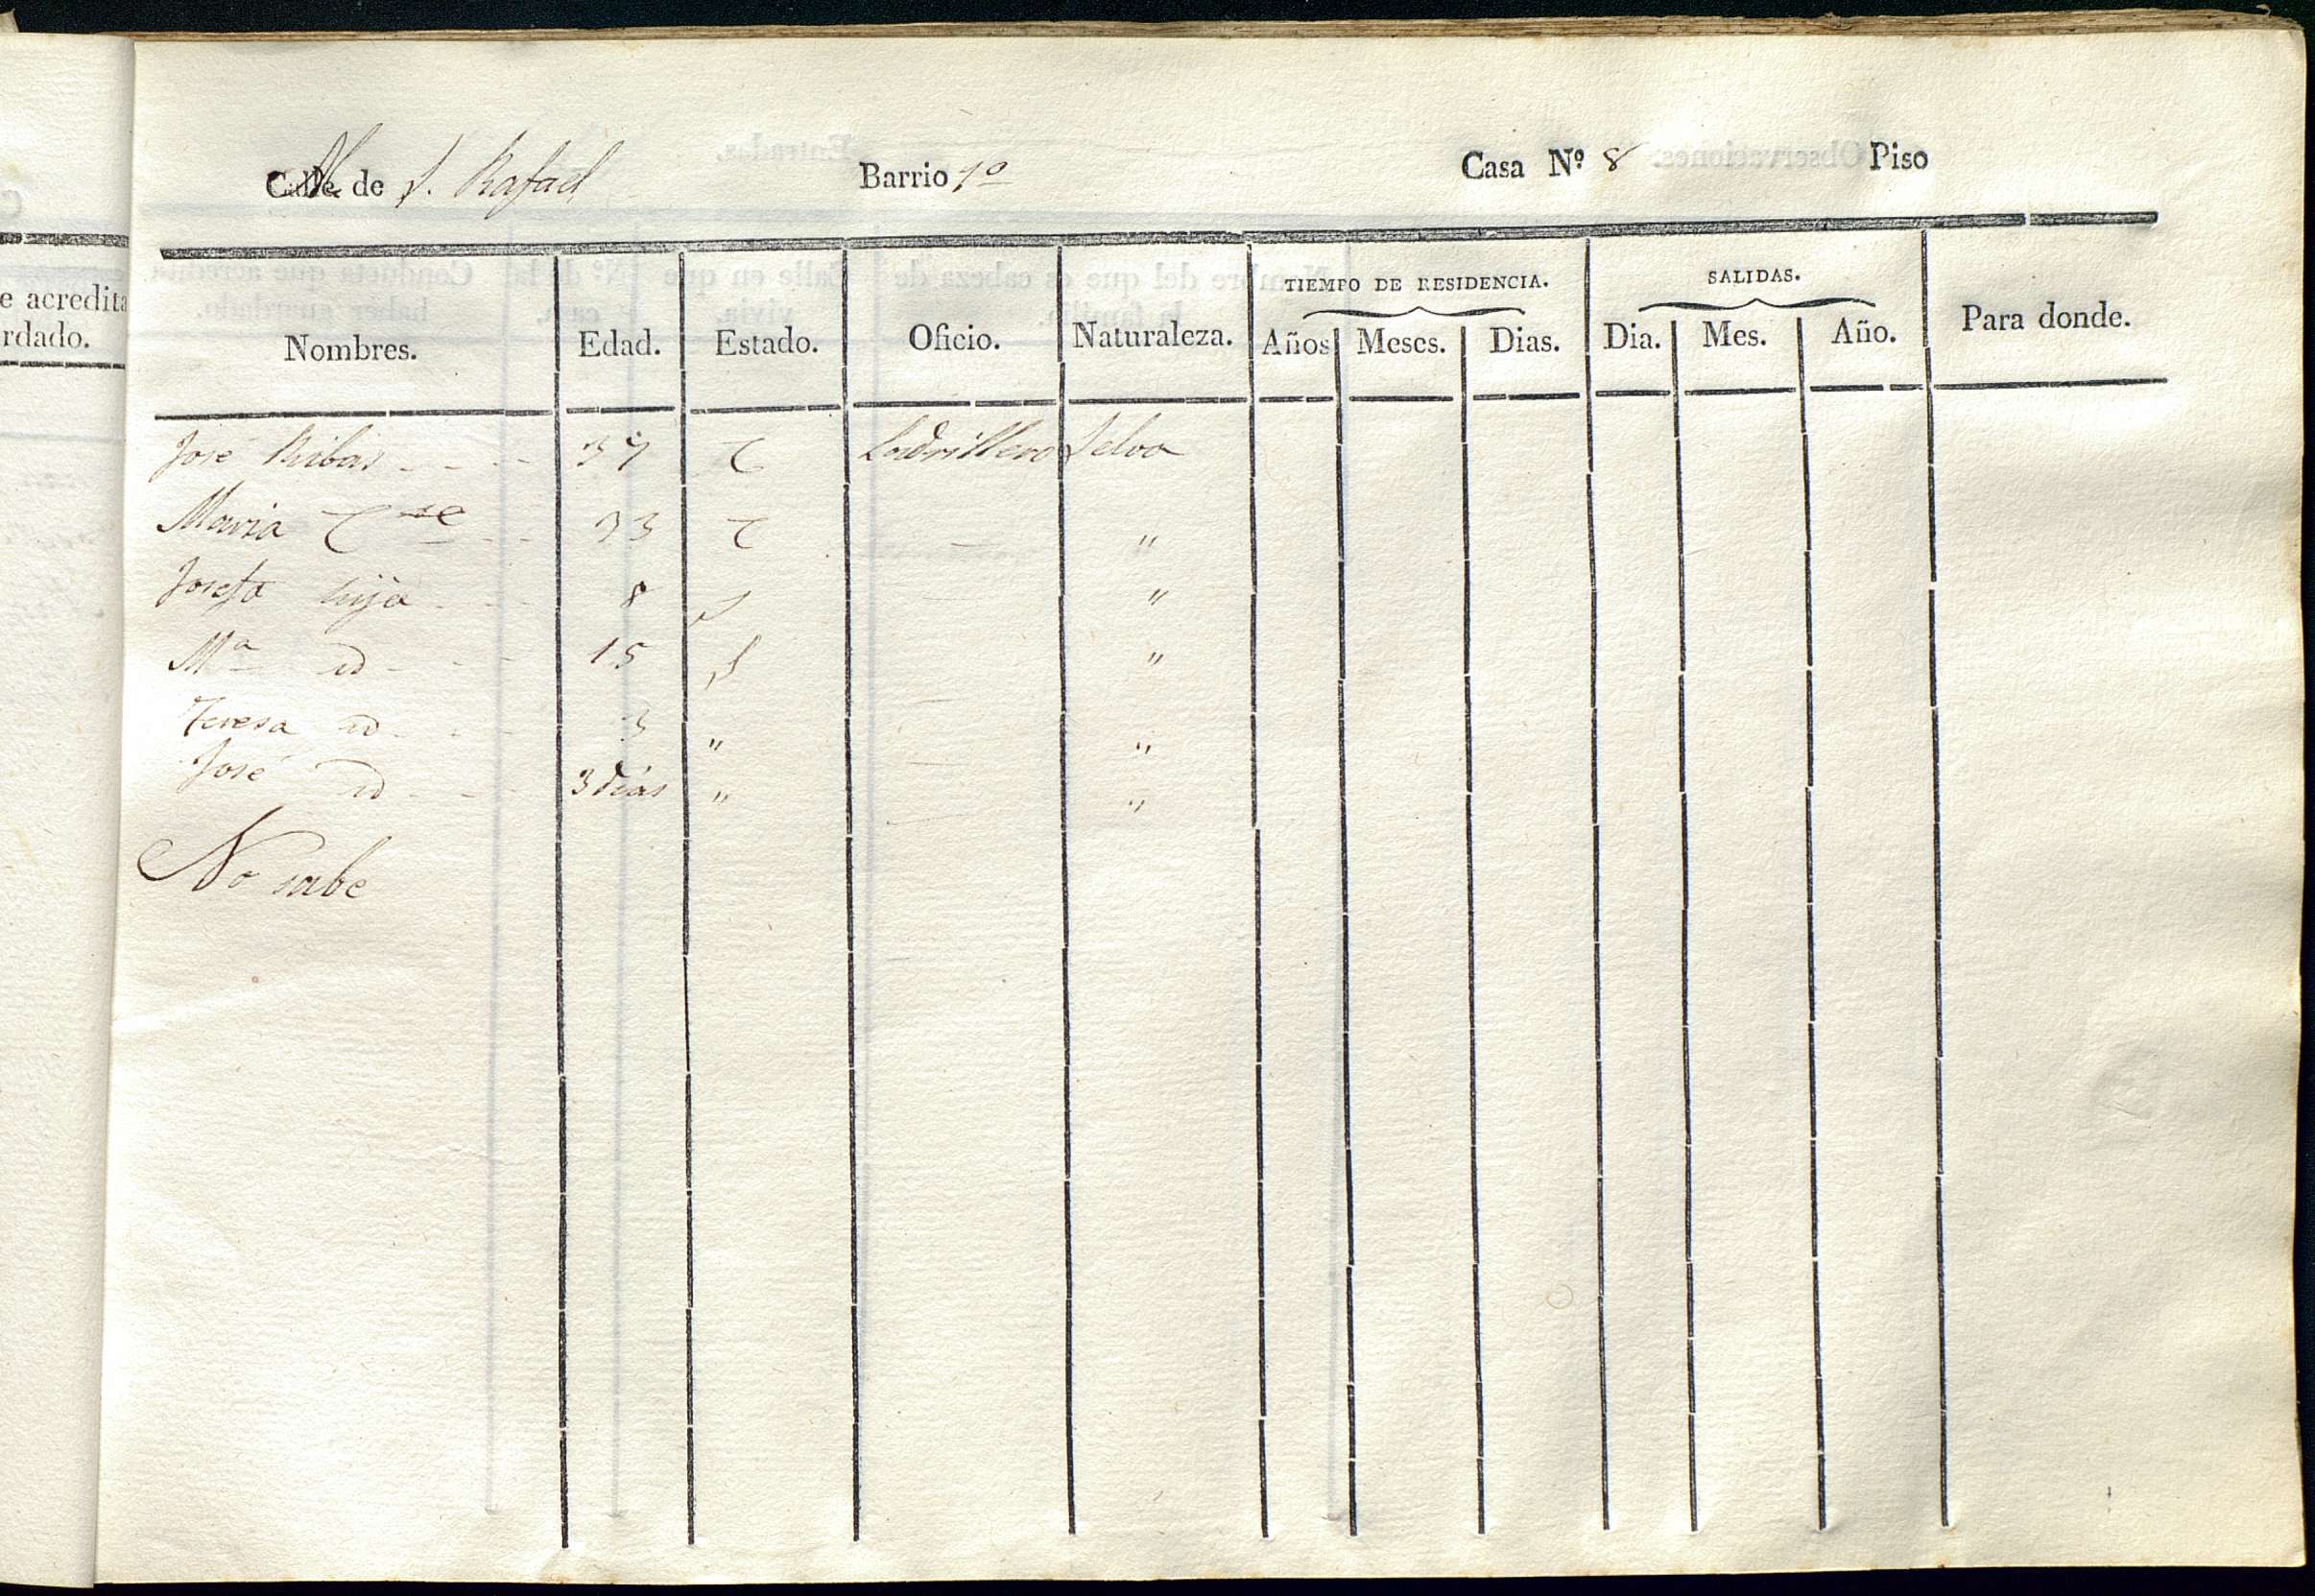 e acredita
rdado.
Calle de S. Rafael Barrio 1º Casa Nº 8 Piso
TIEMPO DE RESIDENCIA. SALIDAS.
Nombres. Edad. Estado. Oficio. Naturaleza. Años Meses. Dias. Dia. Mes. Año. Para donde.
José Ribas 37 C Ladrillero Selva
Maria C 33 C "
Josefa hija 8 S "
Mª id 15 S "
Teresa id 3 " "
José id 3 dias " "
No sabe